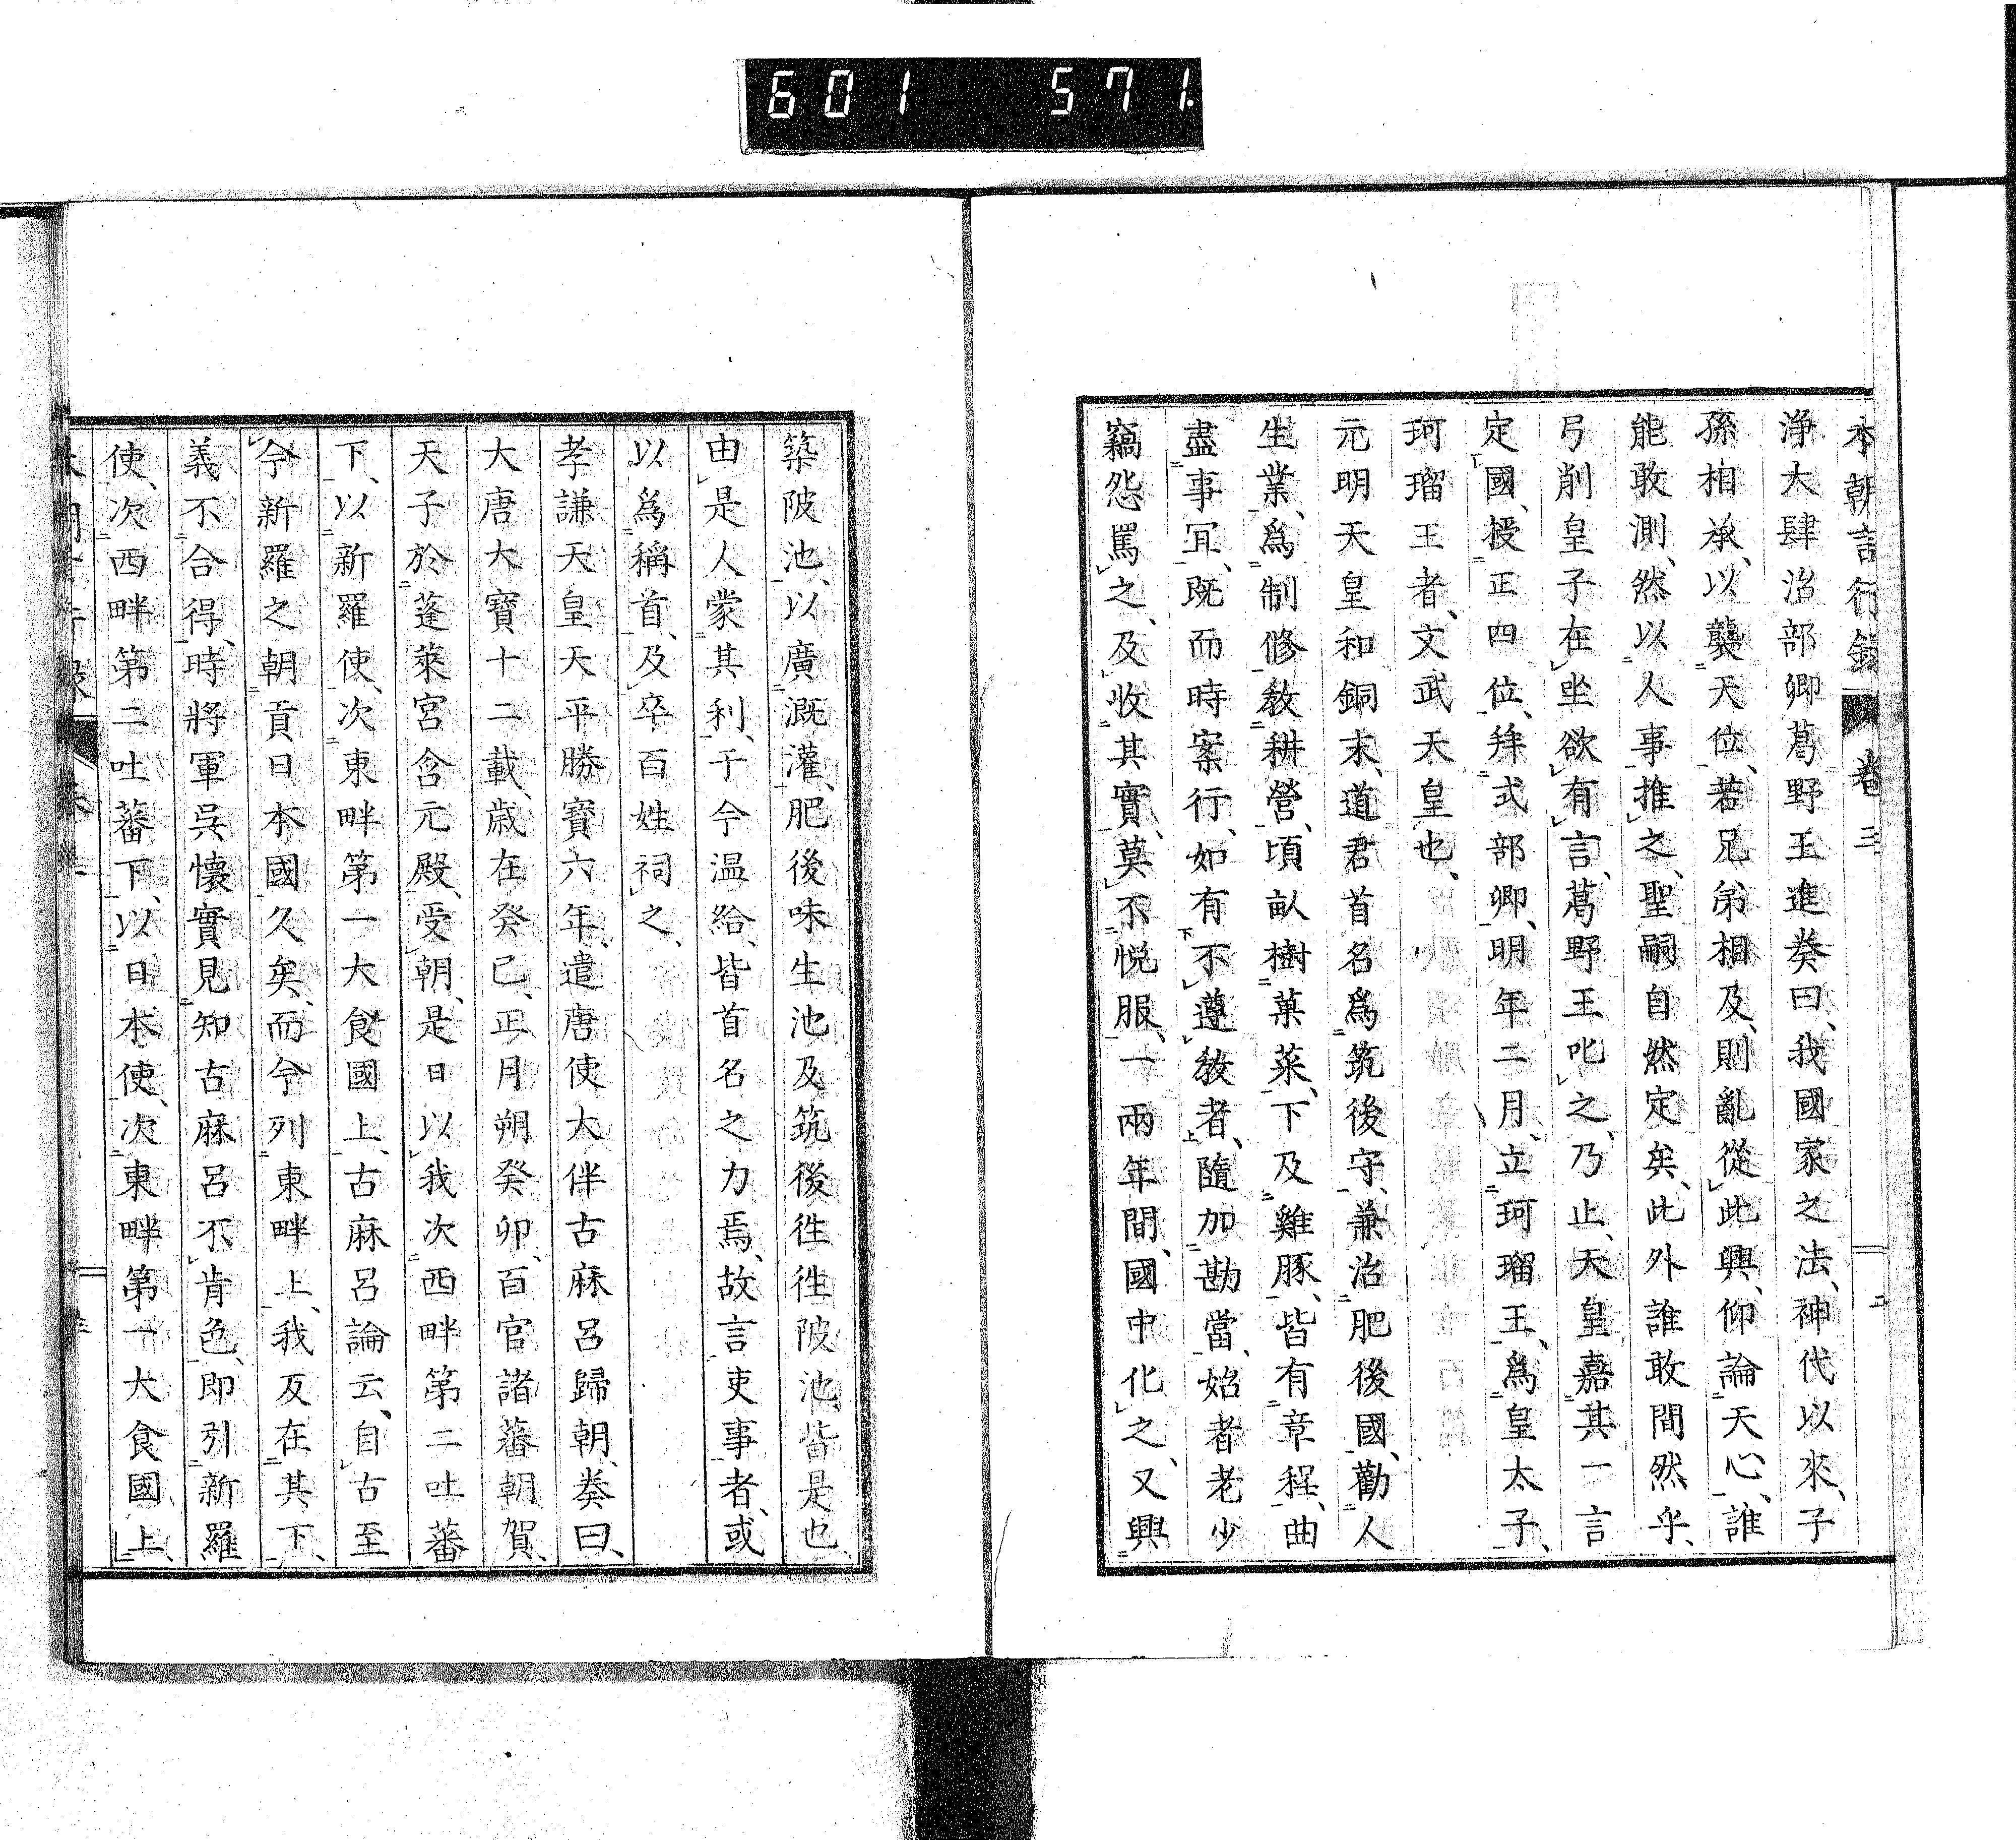 601 571
本朝言行録 卷三 二
浄大肆治部卿葛野王進奏曰、我國家之法、神代以來、子
孫相承、以襲天位、若兄弟相及、則亂從此興、仰論天心、誰
能敢測、然以人事推之、聖嗣自然定矣、此外誰敢間然乎、
弓削皇子在坐欲有言、葛野王叱之、乃止、天皇嘉其一言
定國、授正四位、拜式部卿、明年二月、立珂瑠王、爲皇太子、
珂瑠王者、文武天皇也、
元明天皇和銅末、道君首名爲筑後守、兼治肥後國、勸人
生業、爲制修教耕營、頃畝樹菓菜、下及雞豚、皆有章程、曲
盡事冝、既而時案行、如有不遵教者、隨加勘當、始者老少
竊怨罵之、及收其實、莫不悦服、一兩年間、國中化之、又興
築陂池、以廣溉灌、肥後味生池及筑後徃徃陂池、皆是也、
由是人蒙其利、于今温給、皆首名之力焉、故言吏事者、或
以爲稱首、及卒百姓祠之、
孝謙天皇天平勝寶六年、遣唐使大伴古麻呂歸朝、奏曰、
大唐大寶十二載、歳在癸巳、正月朔癸卯、百官諸蕃朝賀、
天子於蓬萊宮含元殿、受朝、是日以我次西畔第二吐蕃
下、以新羅使、次東畔第一大食國上、古麻呂論云、自古至
今新羅之朝貢日本國久矣、而今列東畔上、我反在其下、
義不合得、時將軍呉懷實見知古麻呂不肯色、即引新羅
使、次西畔第二吐蕃下、以日本使、次東畔第一大食國上、